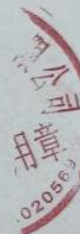 公司
用章
02056